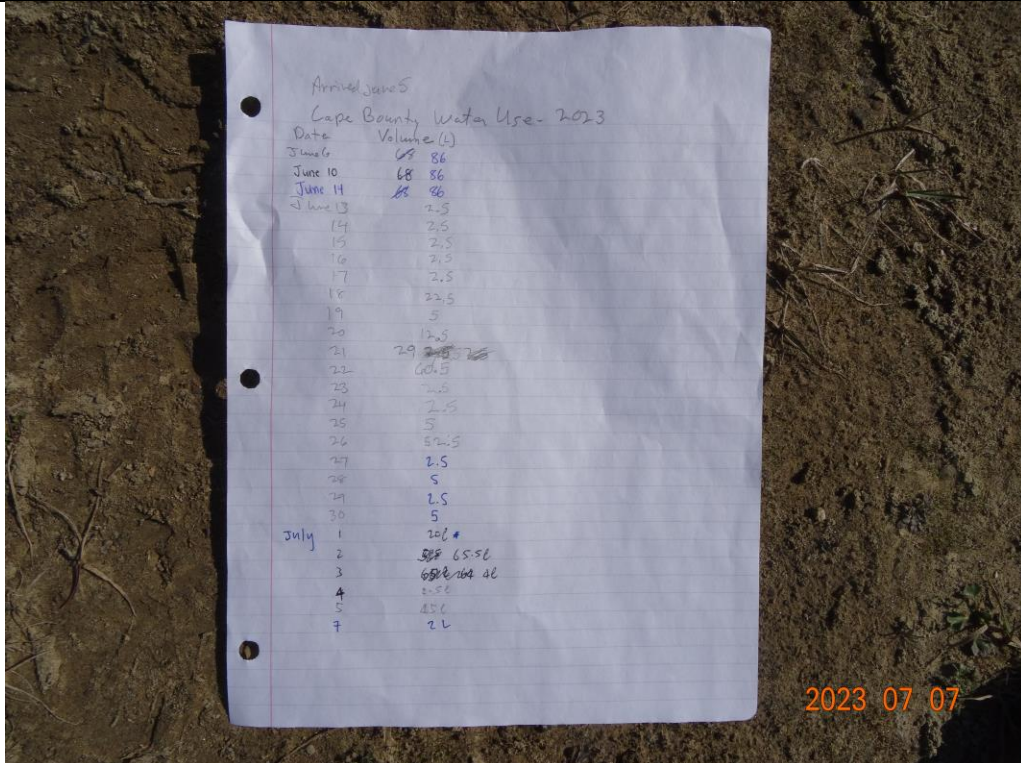 Arrived June 5
Cape Bounty Water Use - 2023
Date Volume (L)
June 6 68 86
June 10 68 86
June 14 68 86
June 13 2.5
14 2.5
15 2.5
16 2.5
17 2.5
18 22.5
19 5
20 12.5
21 29
22 60.5
23 2.5
24 2.5
25 5
26 52.5
27 2.5
28 5
29 2.5
30 5
July 1 20l
2 65.5l
3 4l
4 2.5l
5 45l
7 2 L
2023 07 07